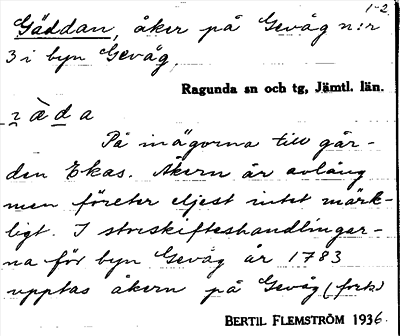 1-2.
Gäddan, åker på Gevåg n:r
3 i byn Gevåg.
Ragunda sn och tg, Jämtl. län.
På inägorna till går-
den Ekas. Åkern är avlång
men företer eljest intet märk-
ligt. I storskifteshandlingar-
na för byn Gevåg år 1783
upptas åkern på Gevåg (forts)
BERTIL FLEMSTRÖM 1936.